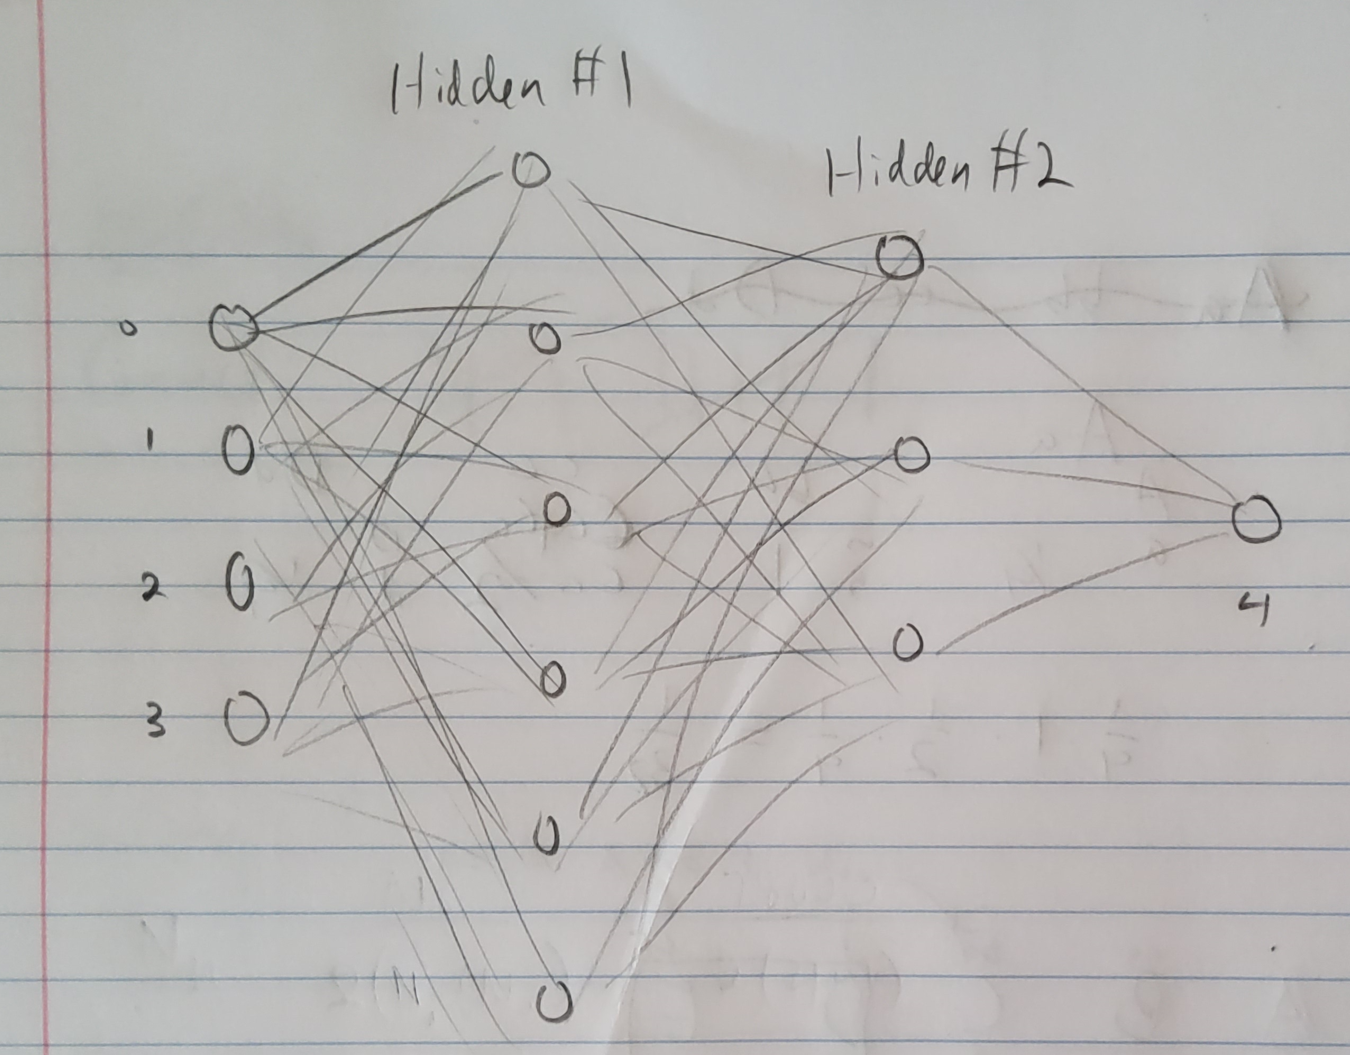 Hidden #1
Hidden #2
0
1
2
3
4